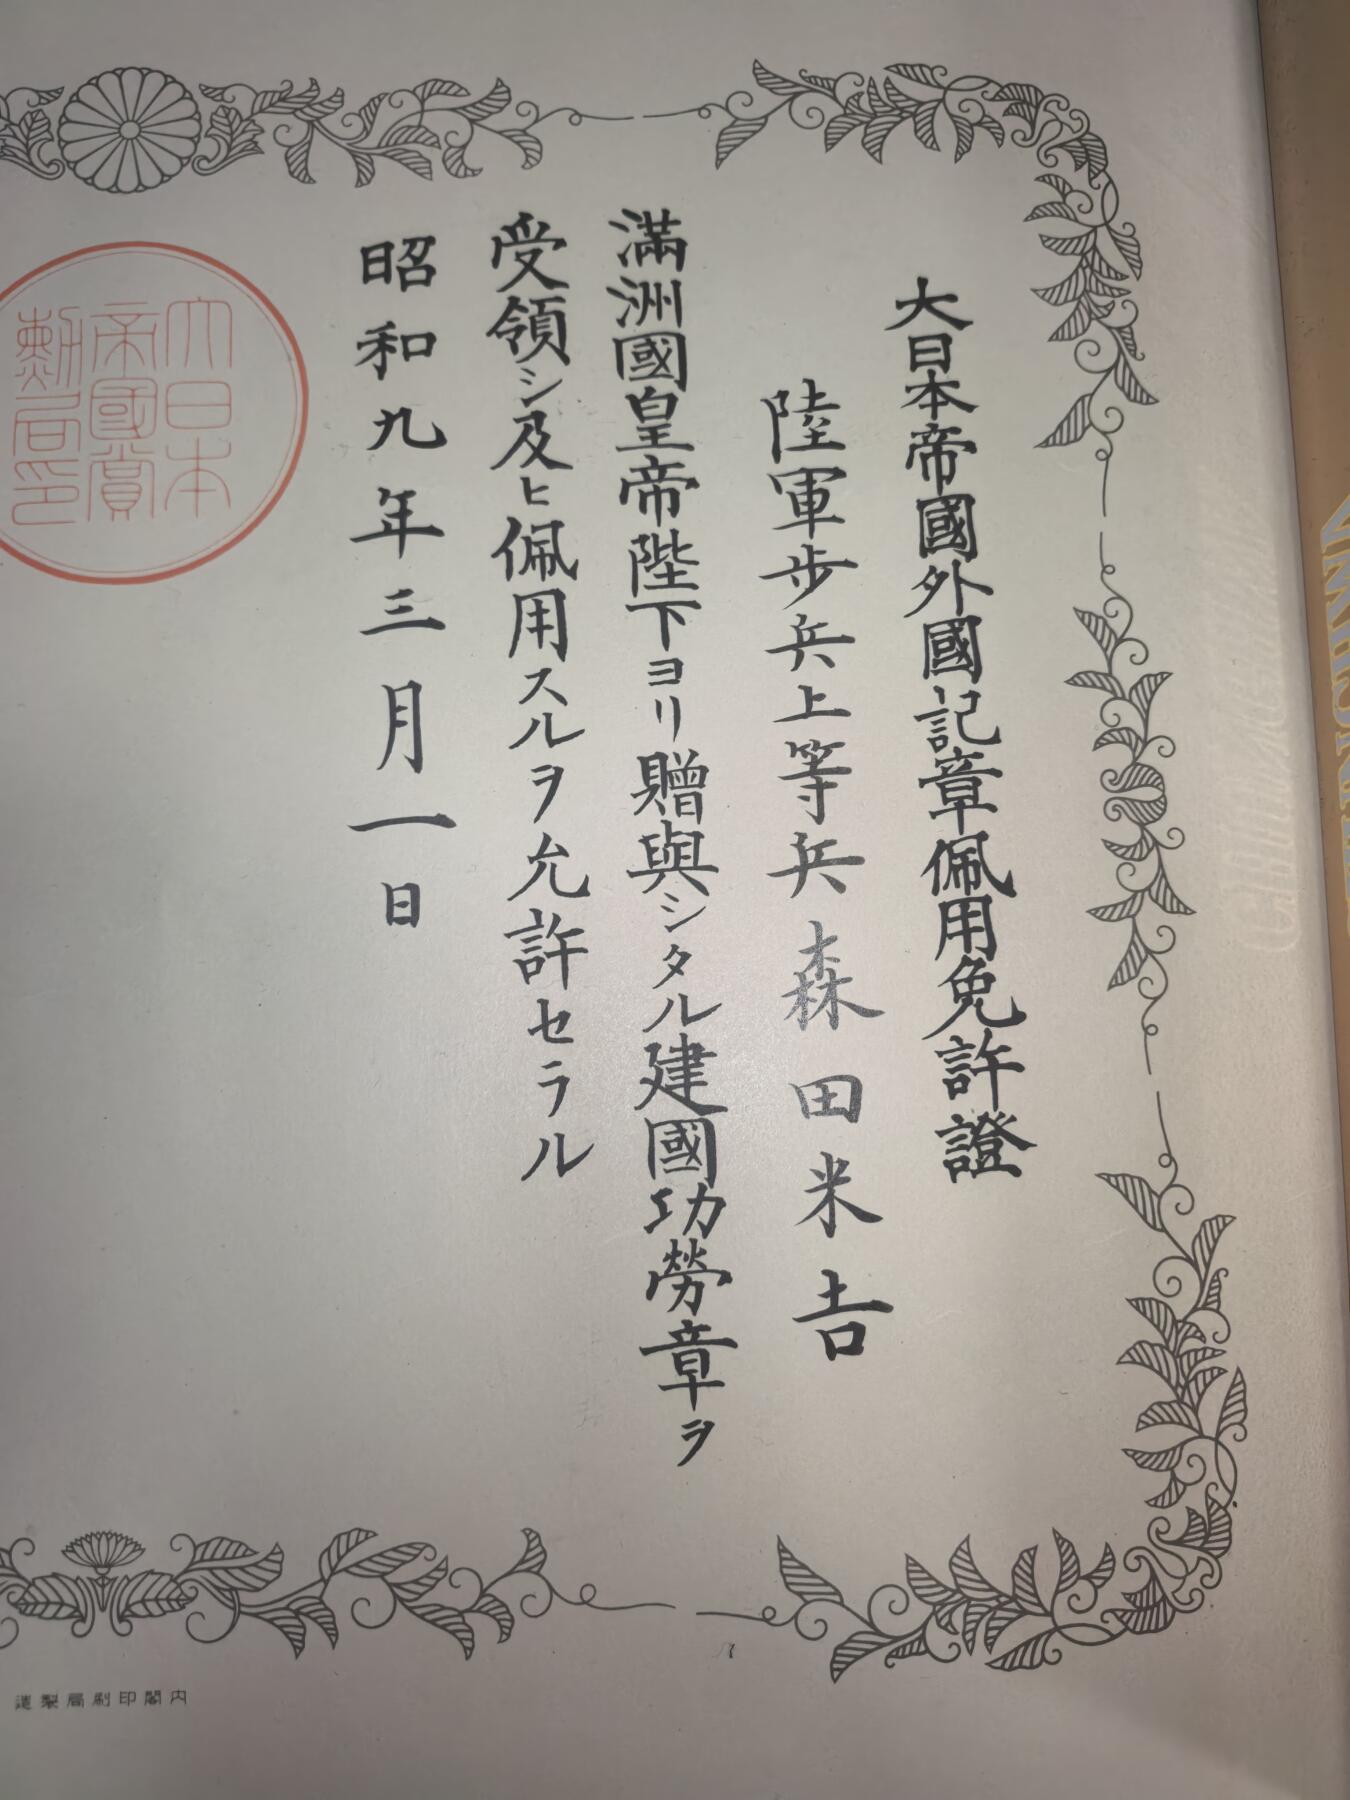 大日本帝國外國記章佩用免許證
陸軍歩兵上等兵森田米吉
滿洲國皇帝陛下ヨリ贈與シタル建國功勞章ヲ
受領シ及ヒ佩用スルヲ允許セラル
昭和九年三月一日
大日本
帝國賞
勲局印
內閣印刷局製造